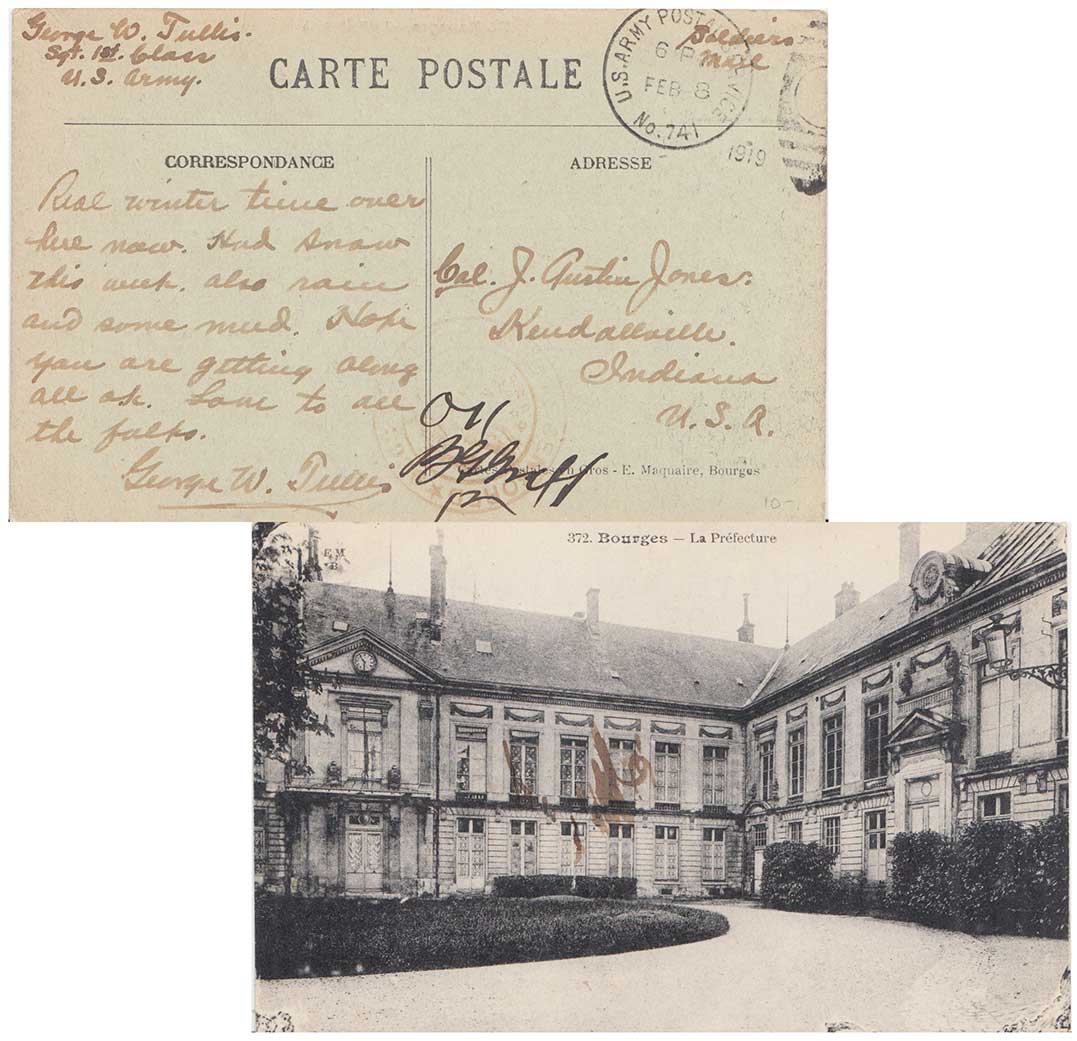 George W. Tullis.
Sgt. 1st. Class
U. S. Army.
CARTE POSTALE
U.S. ARMY POSTAL SERVICE
6 P
FEB 8
No. 741
1919
Soldiers
Mail
CORRESPONDANCE
Real winter time over
here now. Had snow
this week. also rain
and some mud. Hope
you are getting along
all ok. Love to all
the folks.
George W. Tullis
ADRESSE
Col. J. Austin Jones.
Kendallville.
Indiana
U. S. A.
OK
Cartes Postales en Gros - E. Maquaire, Bourges
10-
372. Bourges — La Préfecture
E M
B